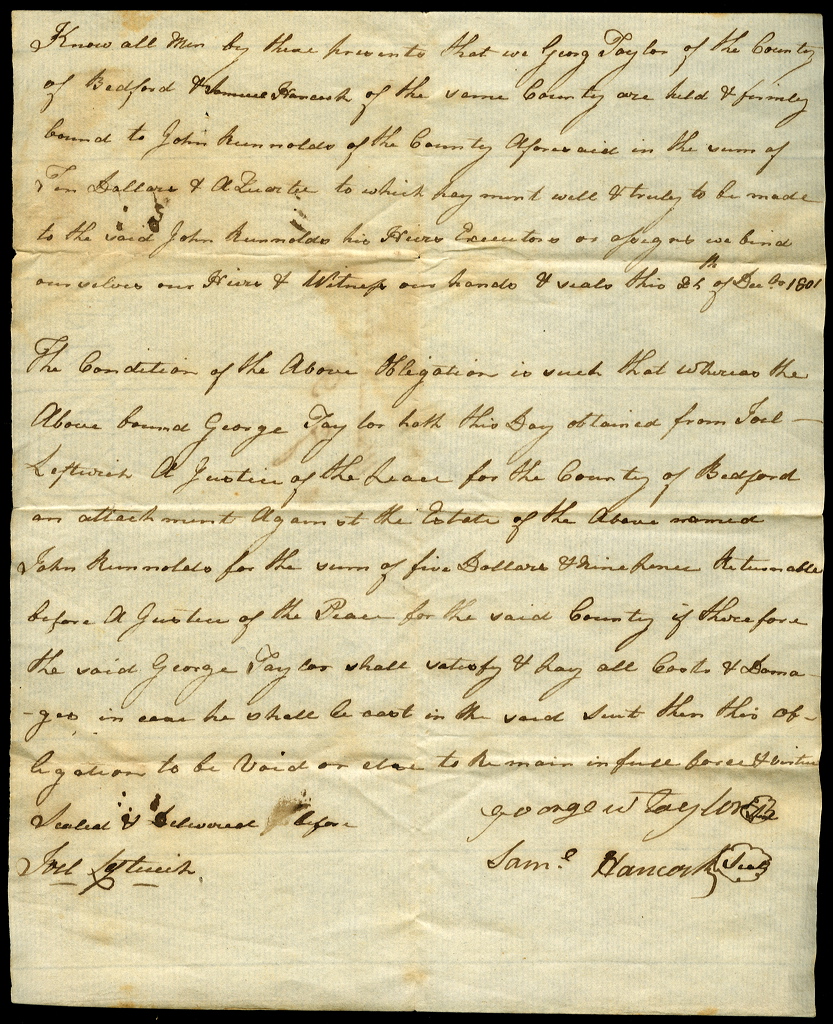 Know all Men by these presents that we Georg Taylor of the County
of Bedford & Samuel Hancock of the same County are held & firmly
bound to John Runnolds of the County Aforesaid in the sum of
Ten Dollars & A Quarter to which payment well & truly to be made
to the said John Runnolds his Heirs Executors or assigns we bind
ourselves our Heirs & Witness our hands & seals this th of Decr 1801
The Condition of the Above Obligation is such that whereas the
Above bound George Taylor hath this Day obtained from Joel
Leftwich A Justice of the peace for the County of Bedford
an attachment Against the Estate of the Above named
John Runnolds for the sum of five Dollars & ninepence Returnable
before A Justice of the Peace for the said County if therefore
the said George Taylor shall satisfy & pay all Costs & Dama-
-ges, in case he shall be cast in the said Suit then this ob-
ligation to be Void or else to Remain in full force & virtue
Sealed & Delivered before
George W Taylor Seal
Joel Leftwich
Saml Hancock Seal